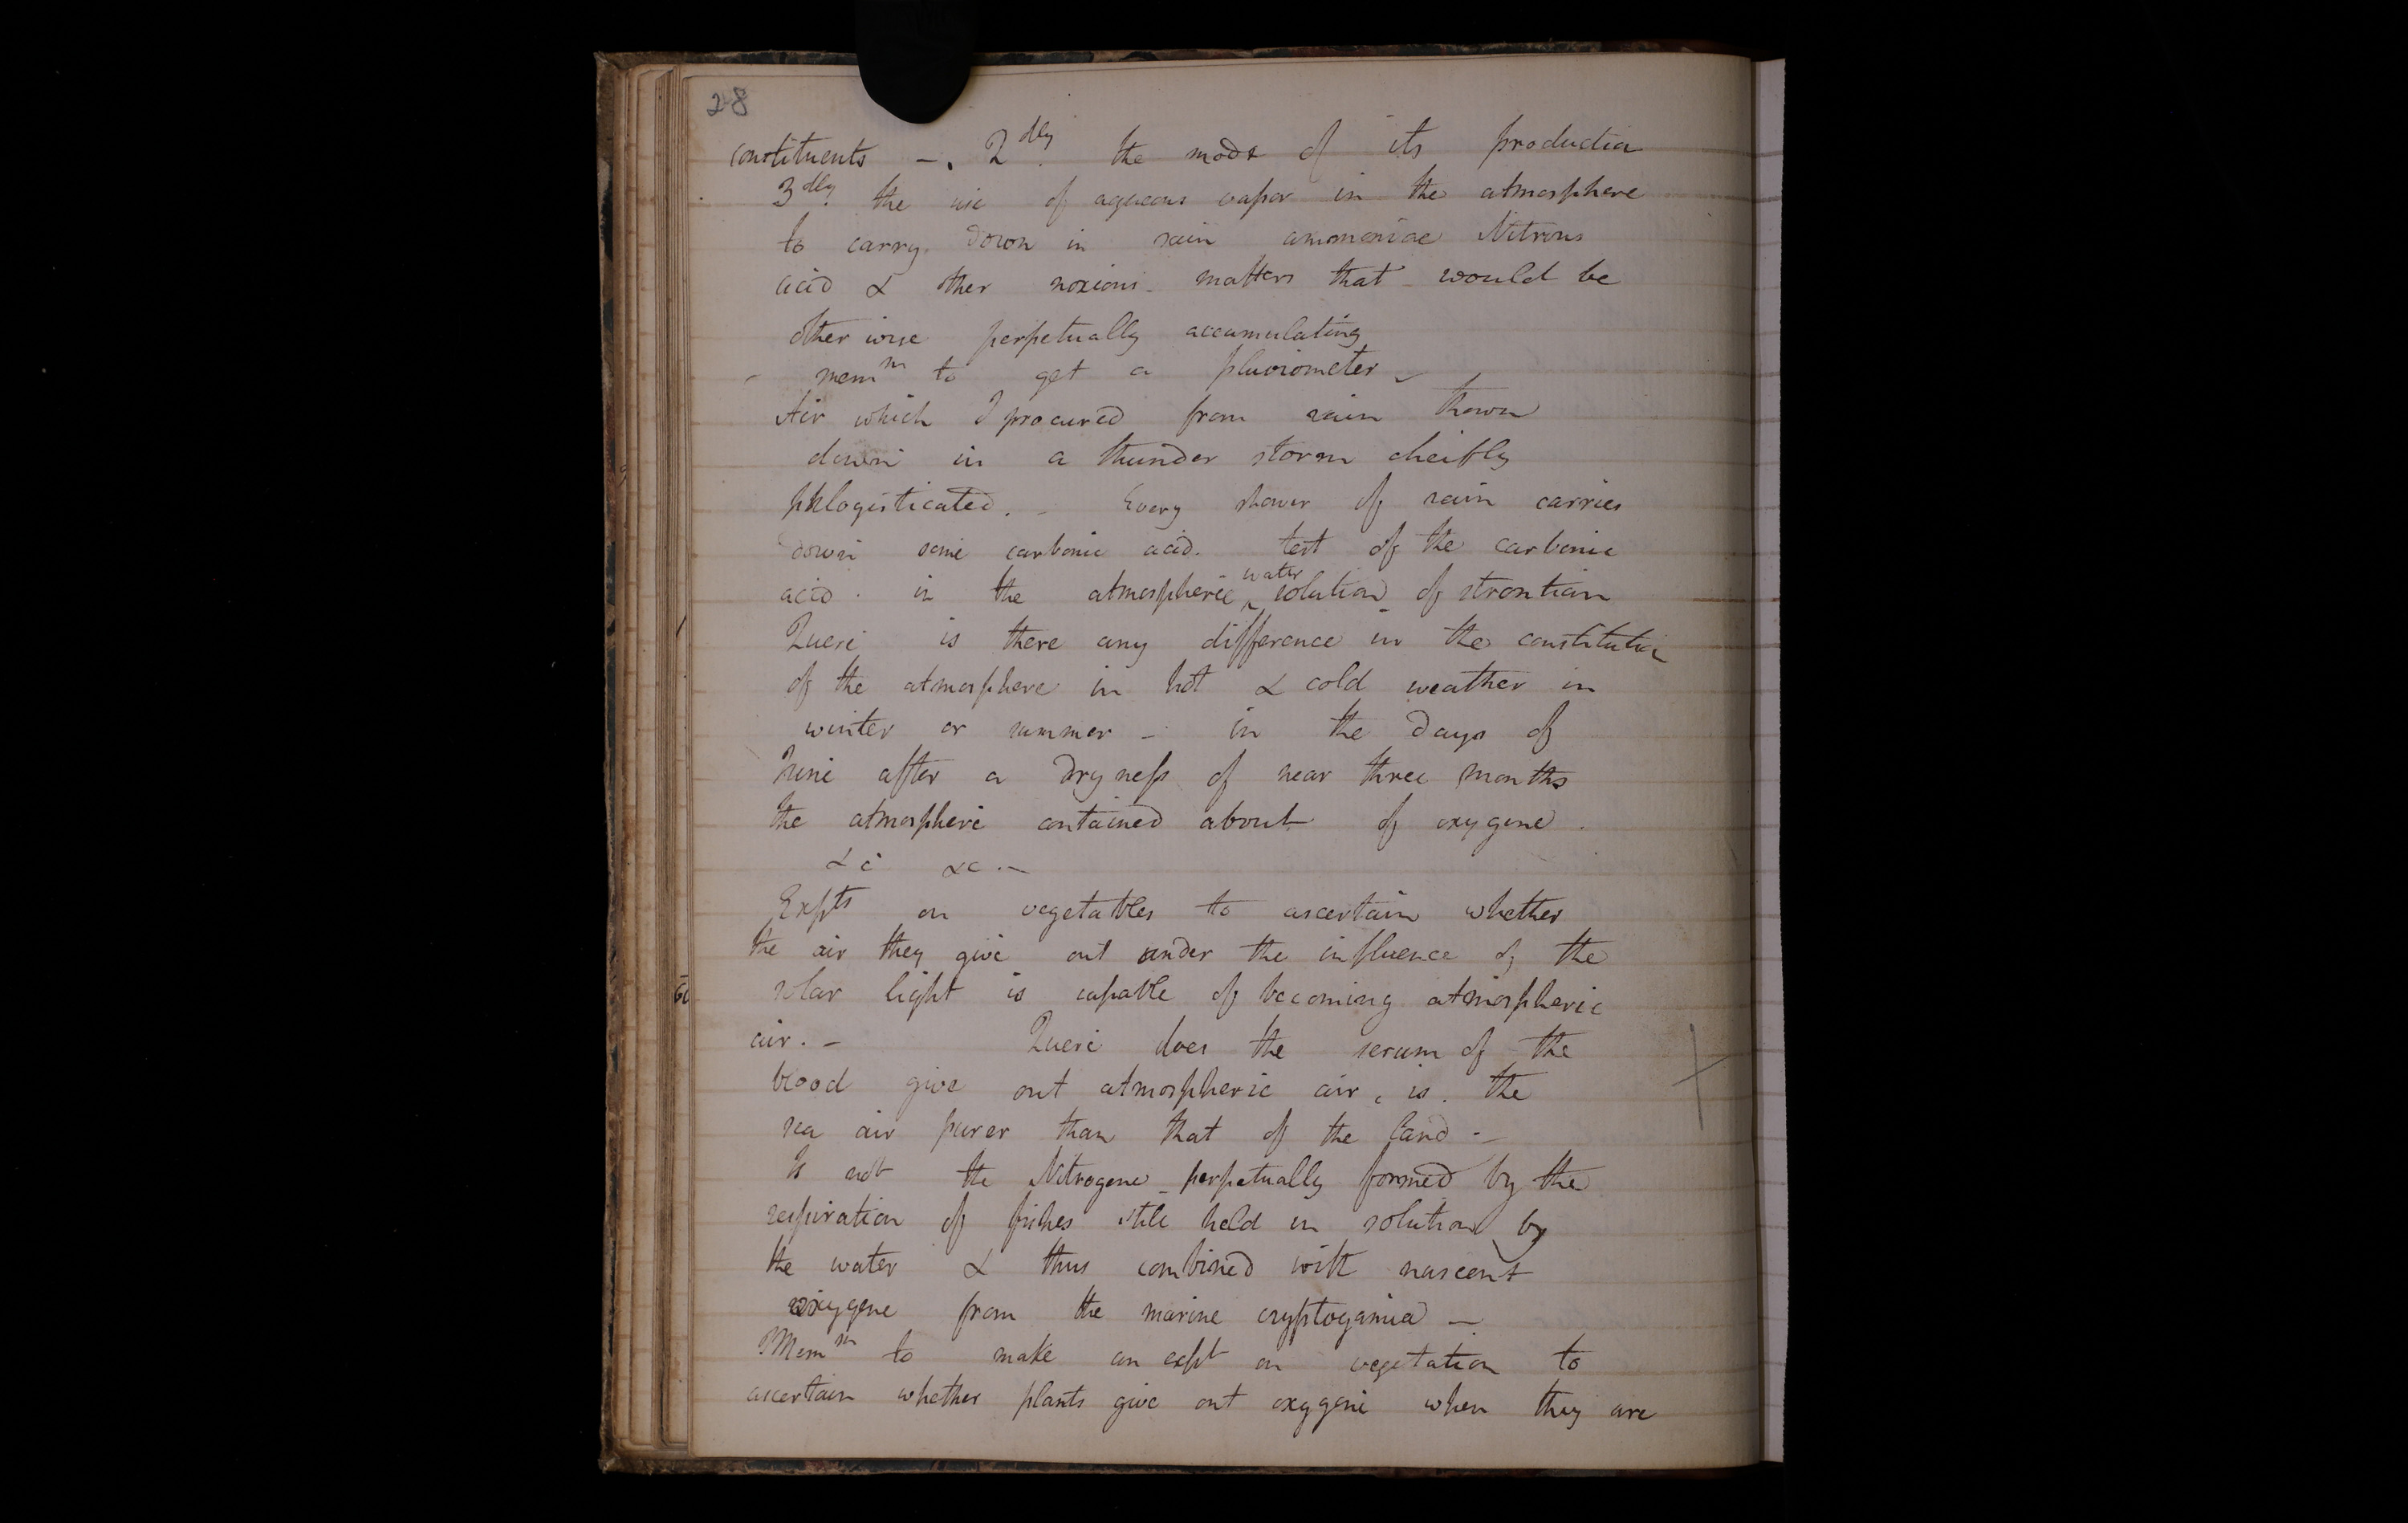 28
constituents –. 2dly. the mode of its production
3dly. the use of aqueous vapor in the atmosphere
to carry down in rain ammoniac Nitrous
acid & other noxious matters that would be
other wise perpetually accumulating
– memm to get a pluviometer –
Air which I procured from rain thown
down in a thunder storm cheifly
phlogisticated. – Every shower of rain carries
down some carbonic acid. test of the carbonic
acid. in the atmospheric water solution of strontian
Quere is there any difference in the constitution
of the atmosphere in hot & cold weather in
winter or summer – in the days of
June after a dryness of near three months
the atmosphere contained about of oxygene.
&c &c. –
Expts on vegetables to ascertain whether
the air they give out under the influence of the
solar light is capable of becoming atmospheric
air. – Quere does the serum of the
blood give out atmospheric air, is. the
sea air purer than that of the land –
Is not the Nitrogene perpetually formed by the
respiration of fishes still held in solution by
the water & thus combined with nascent
oxygene from the marine cryptogamia –
Memm to make an expt on vegetation to
ascertain whether plants give out oxygene when they are